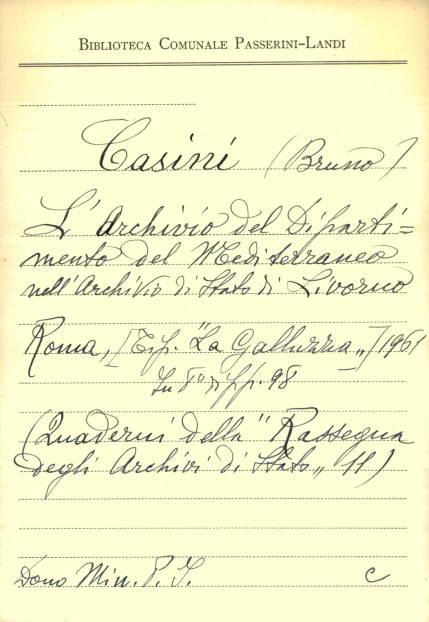 BIBLIOTECA COMUNALE PASSERINI-LANDI
Casini (Bruno)
L'Archivio del Diparti=
mento del Mediterraneo
nell'Archivio di Stato di Livorno
Roma, [Tip. "La Galluzza„] 1961
In 8° di pp. 98
(Quaderni della "Rassegna
degli Archivi di Stato„ 11)
Dono Min. P. I. C